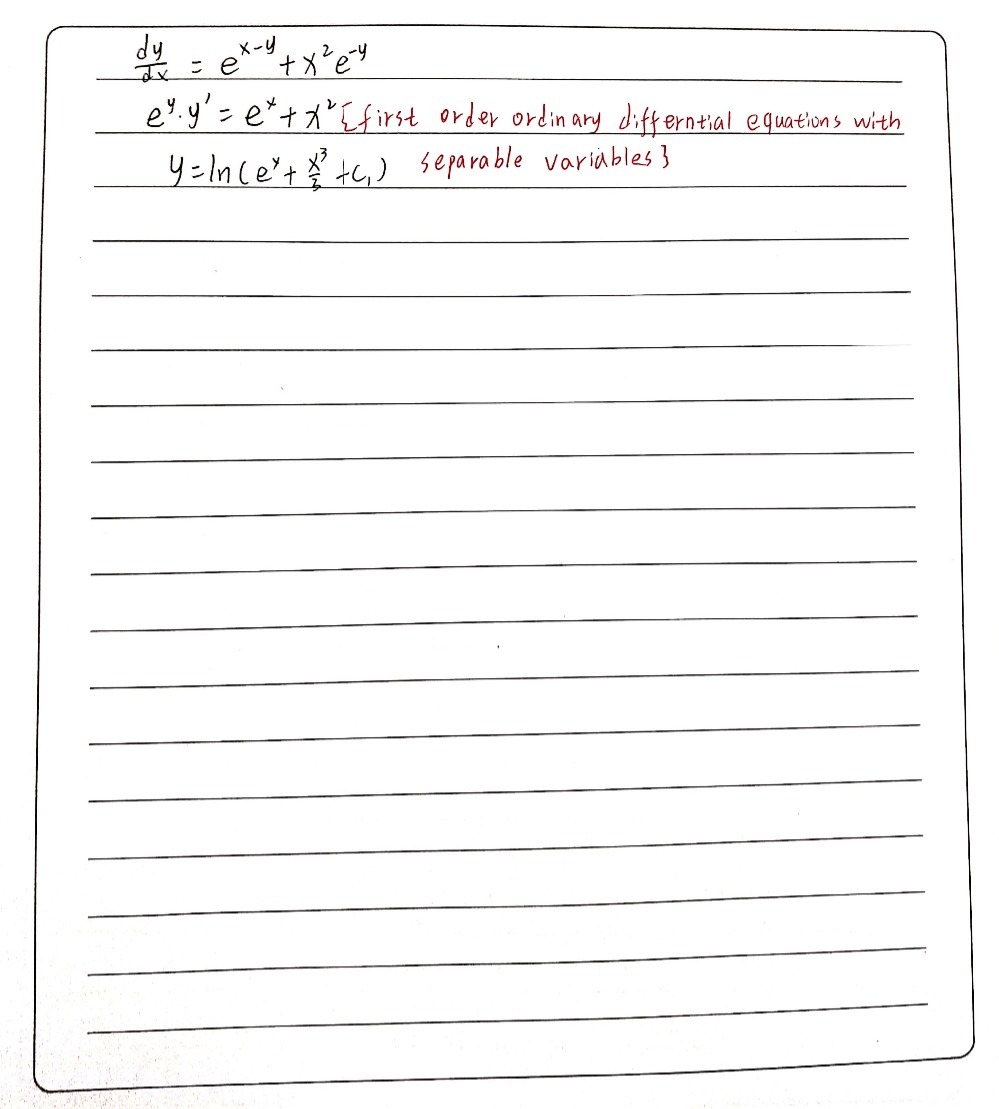 dy/dx = e^(x-y) + x² e^(-y)
e^y · y' = e^x + x² {first order ordinary differntial equations with
y = ln(e^x + x³/3 + c₁) separable variables}